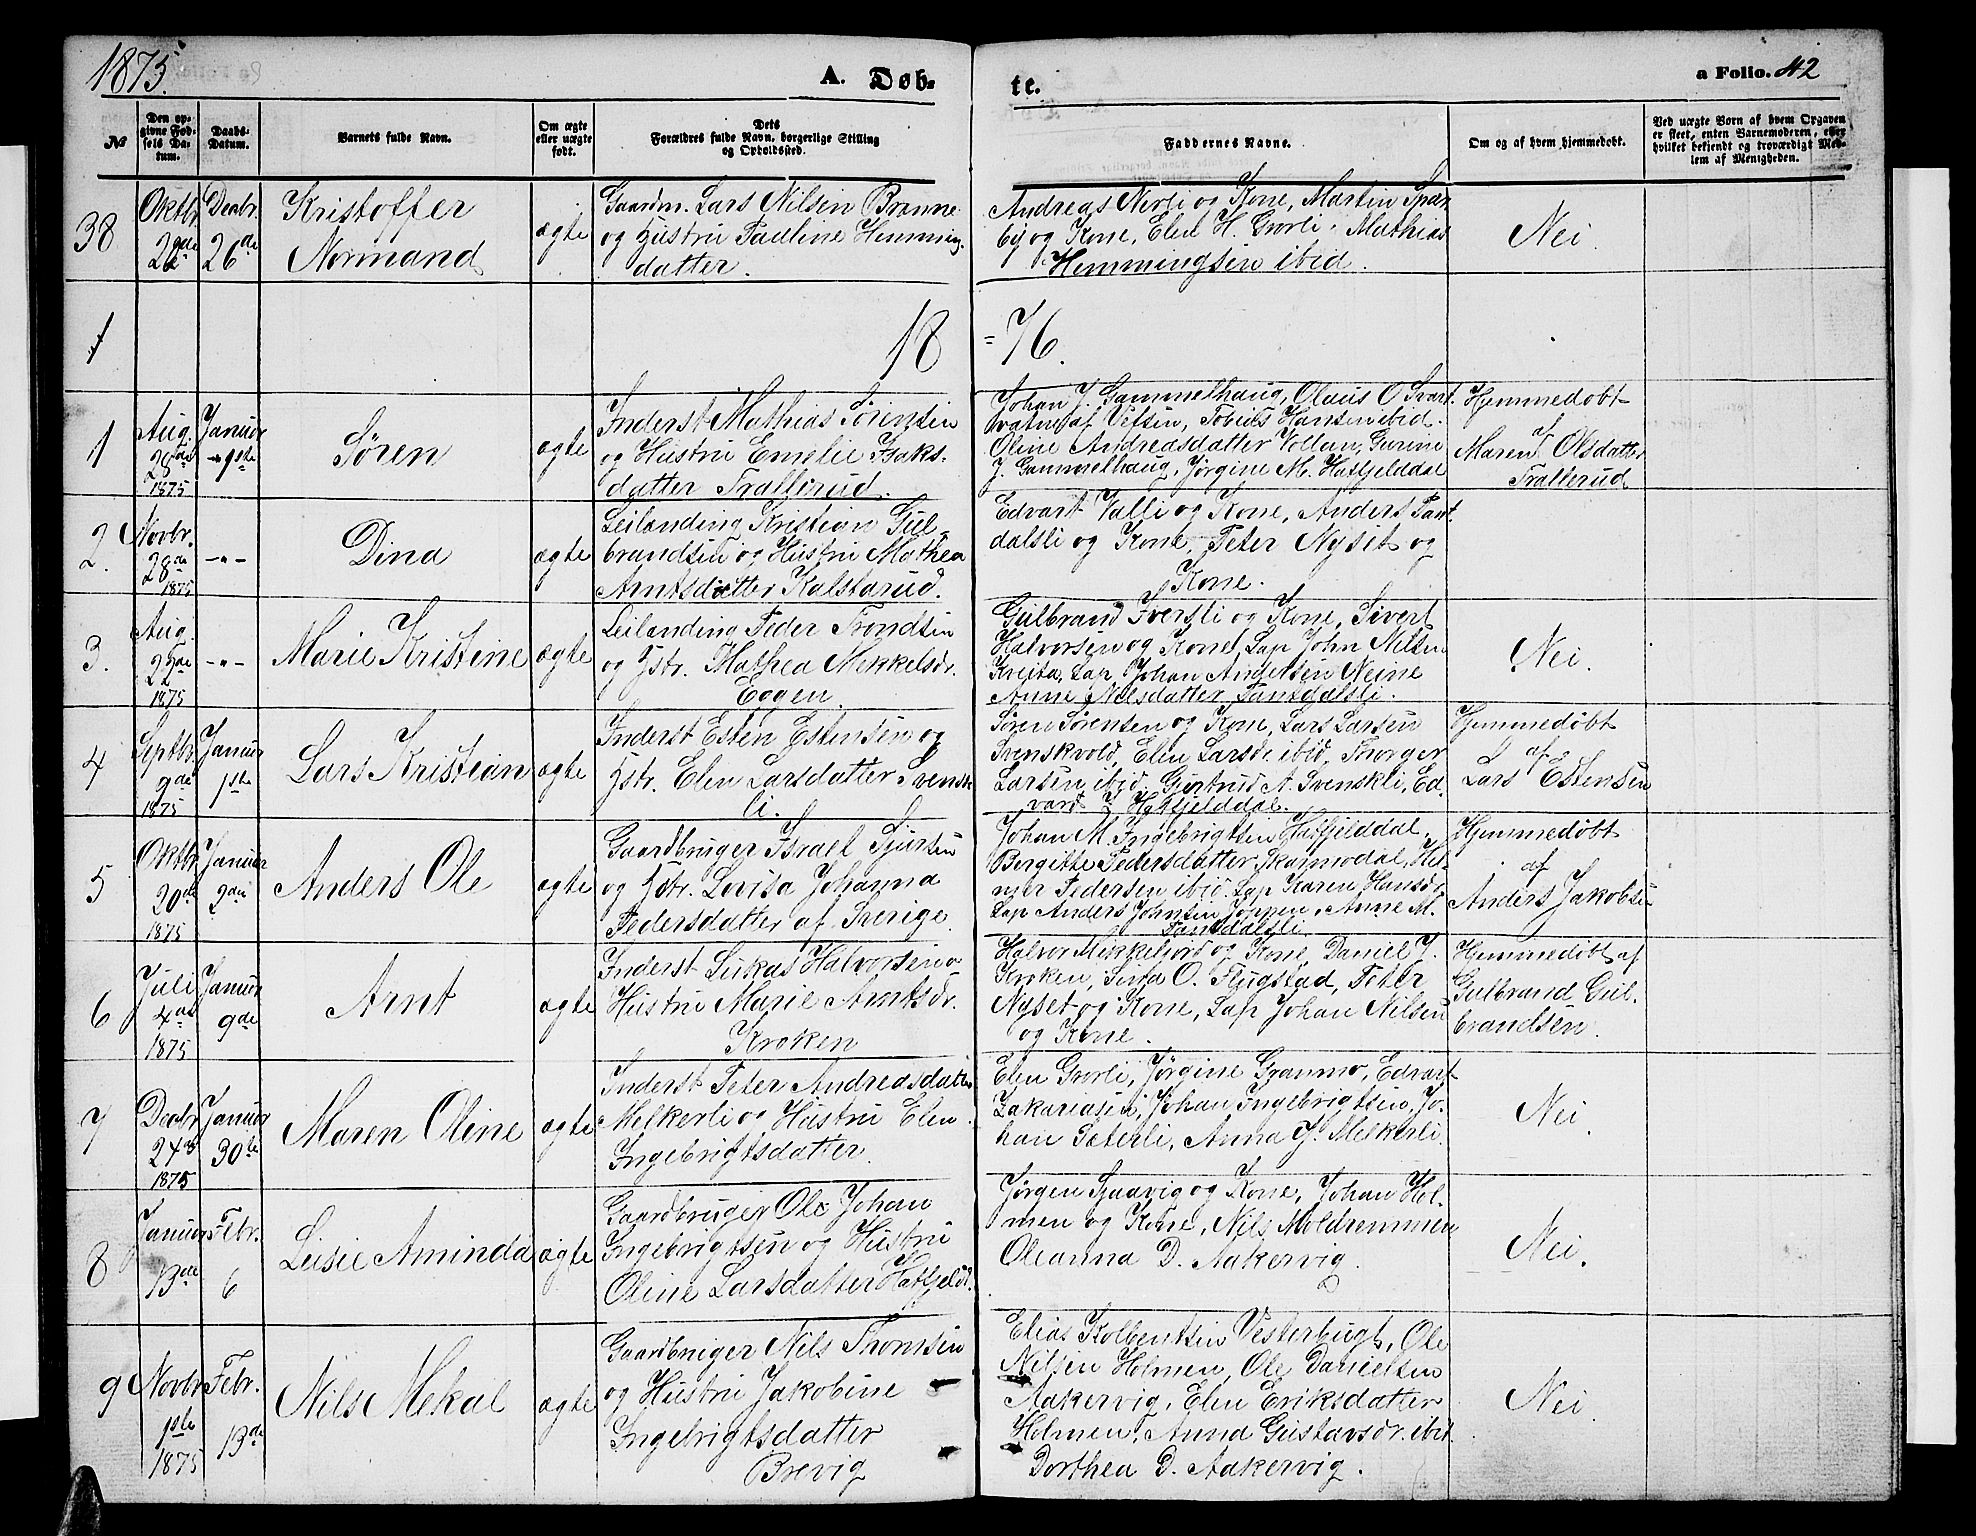 1875.
A. Døb-
te.
a Folio. 42
No
Den op-
givne Fød-
sels Da-
tum.
Daabs-
Datum.
Barnets fulde Navn.
Om ægte
eller uægte
født.
Dets
Forældres fulde Navn, borgerlige Stilling
og Opholdssted.
Faddernes Navne.
Om og af hvem hjemmedøbt.
Ved uægte Børn af hvem Opgaven
er skeet, enten Barnemoderen, eller
hvilket bekjendt og troværdigt Med-
lem af Menigheden.
38
Oktbr.
22de
Decbr.
26de
Kristoffer
Normand
ægte
Gaardm. Lars Nilsen Brønne
og Hustru Pauline Hemming-
datter.
Andreas Nerli og Kone, Martin Spar-
og Kone, Elen H. Grørli, Mathias
Hemmingsen ibid.
Nei.
1
18
=76.
1
Aug.
28de
1875
Januar
1ste
Søren
ægte
Inderst Mathias Sørensen
og Hustru Emelie Isaks-
datter Trallerud.
Johan J. Gammelhaug, Olaus O Svart-
vatn af Vefsen, Tobias Hansen ibid.
Oline Andreasdatter Vollan, Gurine
J. Gammelhaug, Jørgine M. Hatfjelddal
Hjemmedøbt
af
Maren Olsdatter
Trallerud
2.
Novbr.
28de
1875
-"-
Dina
ægte
Leilending Kristian Gul-
brandsen og Hustru Mathea
Arntsdatter Kalstarud.
Edvart Valli og Kone, Anders Pant-
dalsli og Kone, Peter Nyset og
Kone.
3.
Aug.
22de
1875
-"-
Marie Kristine
ægte
Leilending Peder Trondsen
og Hstr. Mathea Mikkelsdr.
Eggen.
Gulbrand Iversli og Kone, Sivert
Halvorsen og Kone, Lap John Nilsen
Kreita, Lap Johan Andersen Neine
Anne Nilsdatter Pantdalsli.
Nei.
4
Septbr.
9de
1875
Januar
1ste
Lars Kristian
ægte
Inderst Esten Estensen og
Hstr. Elen Larsdatter Svensk-
li.
Søren Sørensen og Kone, Lars Larsen
Svenskvold, Elen Larsdr. ibid, Thorger
Larsen ibid. Gurtrud A. Svenskli, Ed-
vard Hatfjelddal.
Hjemmedøbt
af
Lars Estensen
5
Oktbr.
20de
1875
Januar
2den
Anders Ole
ægte
Gaardbruger Israel Sjursen
og Hstr. Lovisa Johanna
Pedersdatter af Sverige.
Johan M. Ingebrigtsen Hatfjelddal,
Bergitte Pedersdatter Skarmodal, Hel-
mer Pedersen ibid. Lap Karen Hansdr.
Lap Anders Johnsen Joppen, Anne M.
Pantdalsli.
Hjemmedøbt
af
Anders Jakobsen
6
Juli
4de
1875
Januar
9de
Arnt
ægte
Inderst Lukas Halvorsen o
Hustru Marie Arntsdr.
Kroken
Halvor Mikkeljord og Kone, Daniel J.
Kroken, O. Flugstad, Peter
Nyset og Kone, Lap Johan Nilsen
og Kone.
Hjemmedøbt af
Gulbrand Gul-
brandsen.
7
Decbr.
24de
1875
Januar
30te
Maren Oline
ægte
Inderst Peter Andreasdatter
Melkerli og Hustru Elen
Ingebrigtsdatter.
Elen Grørli, Jørgine Granmo, Edvart
Zakariasen, Johan Ingebrigtsen, Jo-
han Sæterli, Anna J. Melkerli.
Nei.
8
Januar
13de
Febr.
6
Leisie Aminda
ægte
Gaardbruger Ole Johan
Ingebrigtsen og Hustru
Oline Larsdatter Hatfjeld.
Jørgen Sjaavig og Kone, Johan Hol-
men og Kone, Nils Moldremmen
Oleanna D. Aakervig.
Nei.
9
Novbr.
1ste
1875
Febr.
13de
Nils Mekal
ægte
Gaardbruger Nils Thomsen
og Hustru Jakobine
Ingebrigtsdatter
Brevig
Elias Kolbentsen Vesterbugt, Ole
Nilsen Holmen, Ole Danielsen
Aakervig, Elen Eriksdatter
Holmen, Anna Gustavsdr. ibid.
Dorthea D. Aakervig.
Nei